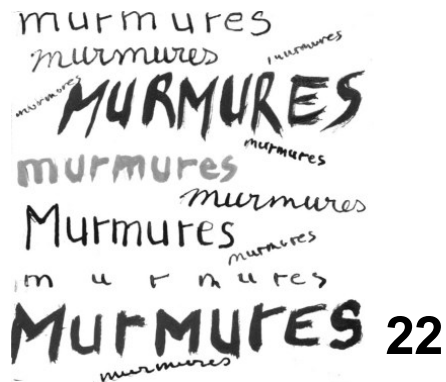 murmures
murmures
murmures
murmures
MURMURES
murmures
murmures
murmures
Murmures
murmures
murmures
Murmures 22
murmures